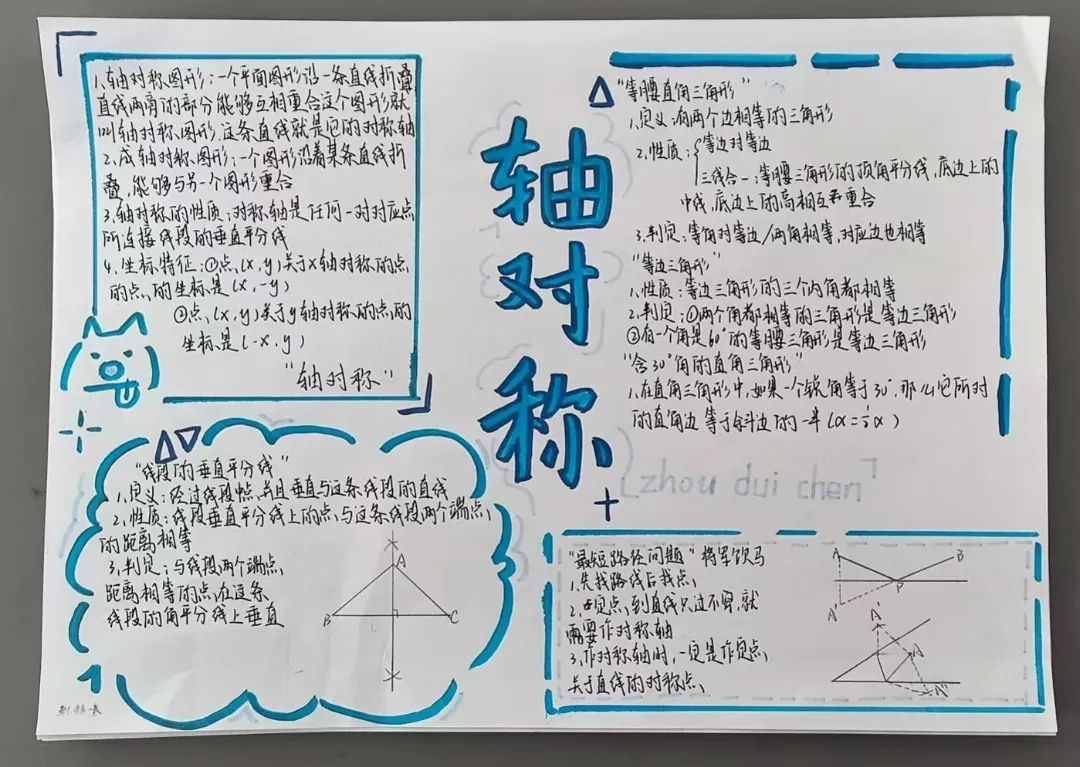 1、轴对称图形：一个平面图形沿一条直线折叠
直线两旁的部分能够互相重合这个图形就
叫轴对称图形，这条直线就是它的对称轴
2、成轴对称图形：一个图形沿着某条直线折
叠，能够与另一个图形重合
3、轴对称的性质：对称轴是任何一对对应点
所连接线段的垂直平分线
4、坐标特征：①点（x，y）关于x轴对称的点
的点的坐标是（x，-y）
②点（x，y）关于y轴对称的点的
坐标是（-x，y）
"轴对称"
"线段的垂直平分线"
1、定义：经过线段中点并且垂直与这条线段的直线
2、性质：线段垂直平分线上的点与这条线段两个端点
的距离相等
3、判定：与线段两个端点
距离相等的点在这条
线段的角平分线上垂直
A
B
C
轴对称
zhou dui chen
"等腰直角三角形"
1、定义：有两个边相等的三角形
2、性质：等边对等边
三线合一：等腰三角形的顶角平分线，底边上的
中线，底边上的高相互重合
3、判定：等角对等边/两角相等，对应边也相等
"等边三角形"
1、性质：等边三角形的三个内角都相等
2、判定：①两个角都相等的三角形是等边三角形
②有一个角是60°的等腰三角形是等边三角形
"含30°角的直角三角形"
1、在直角三角形中，如果一个锐角等于30°，那么它所对
的直角边等于斜边的一半
"最短路径问题"将军饮马
1、先找路线后找点
2、定点到直线只过不穿，就
需要作对称轴
3、作对称轴时，一定是作定点
关于直线的对称点
A
B
P
A'
A'
A
A"